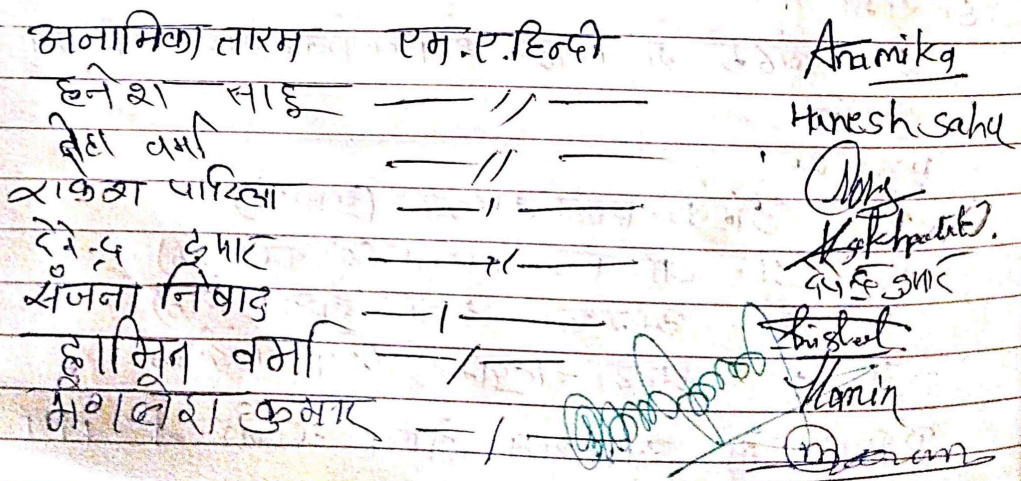 अनामिका तारम एम.ए.हिन्दी Anamika
हनेश साहू — // — Hanesh sahu
नेहा वर्मा — // —
राकेश पाटिला — / —
देवेन्द्र कुमार — // — देवेन्द्र कुमार
संजना निषाद — / —
हामिन वर्मा — / — Hamin
कुमार — / —